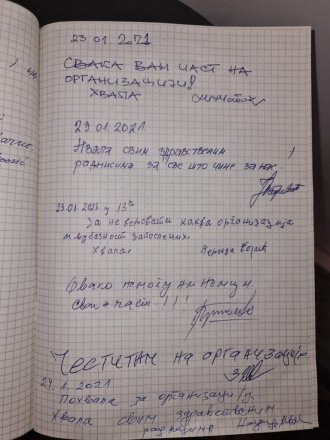 23.01.2021
СВАКА ВАМ ЧАСТ НА
ОРГАНИЗАЦИЈИ!
ХВАЛА
23.01.2021
Хвала свим здравственим
радницима за све што чине за нас!
23.01.2021. у 13
За не веровати каква организација
и љубазност запослених.
Хвала!
Овако не могу ни Немци.
Свака част!!!
Честитам на организацији
24.1.2021
Похвала за организацију
Хвала свим здравственим
радницима